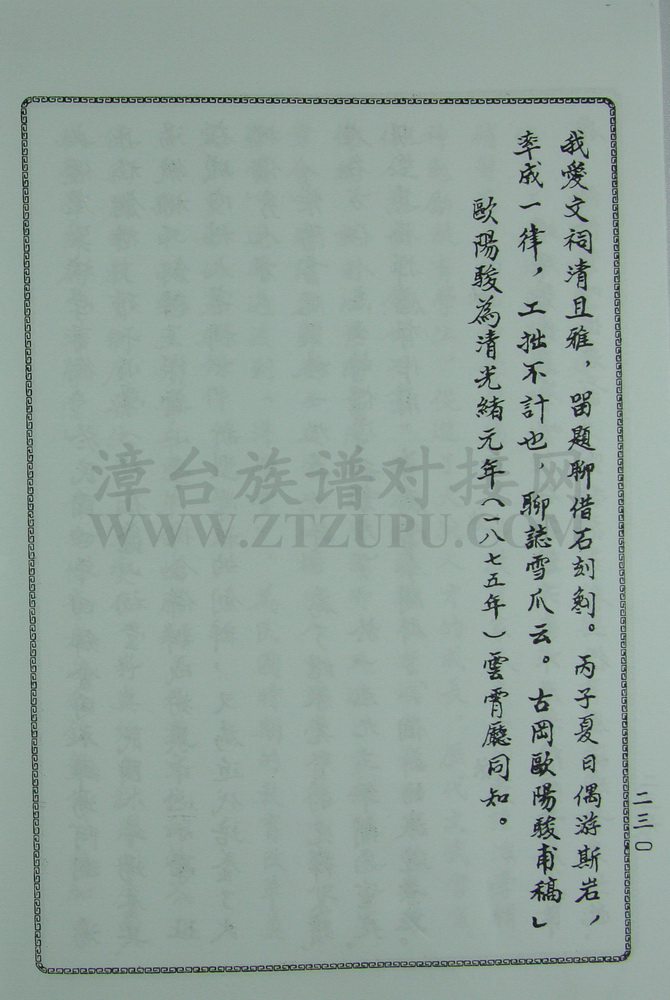 我愛文祠清且雅，留題聊借石刻劖。丙子夏日偶游斯岩，
率成一律，工拙不計也，聊誌雪爪云。古岡歐陽駿甫稿」
歐陽駿為清光緒元年（一八七五年）雲霄廳同知。
二三〇
漳台族谱对接网
WWW.ZTZUPU.COM